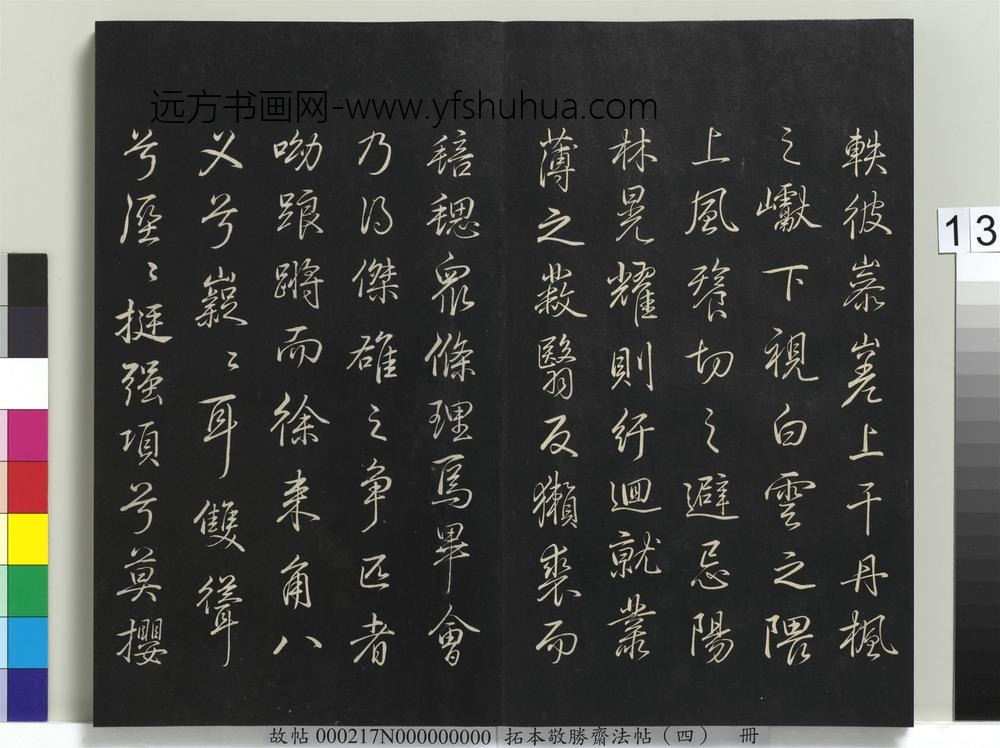 軼彼嶪嵳上干丹楓
之巘下視白雲之隈
上風飱切之避忌陽
林晃耀則紆迴就叢
薄之蔽翳反獺裘而
稖穗眾條理焉畢會
乃得傑雄之争匹者
呦踉蹡而徐来角八
义兮嶷〻耳雙聳
兮溼〻挺强項兮莫攖
远方书画网-www.yfshuhua.com
13
故帖 000217N000000000 拓本敬勝齋法帖（四） 冊